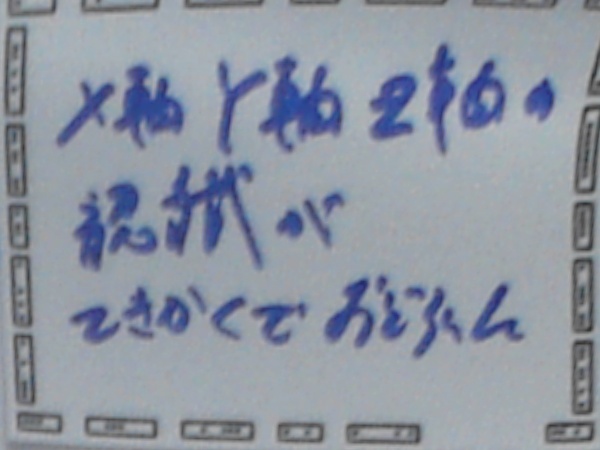 X軸Y軸Z軸の
認識が
てきかくでおどろいた